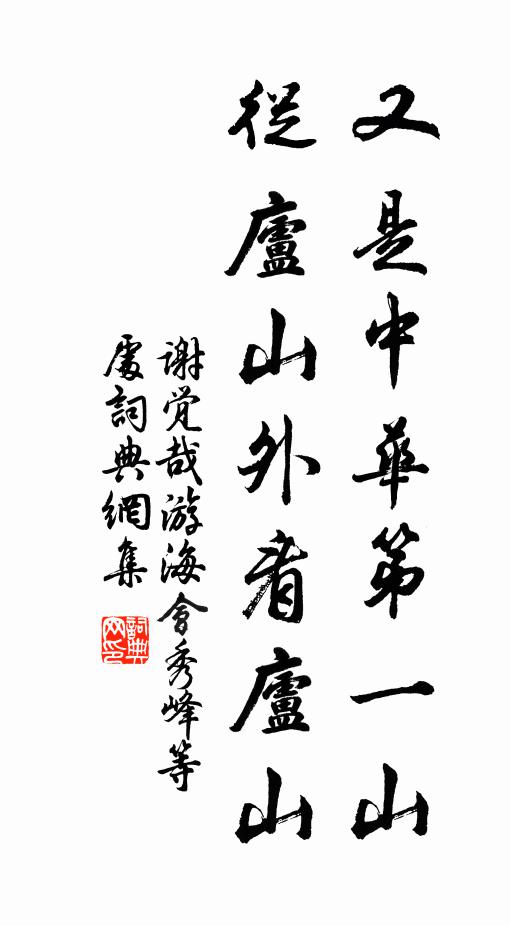 又是中華第一山
從廬山外看廬山
谢觉哉游海會秀峰等
處詞典網集
詞典网印